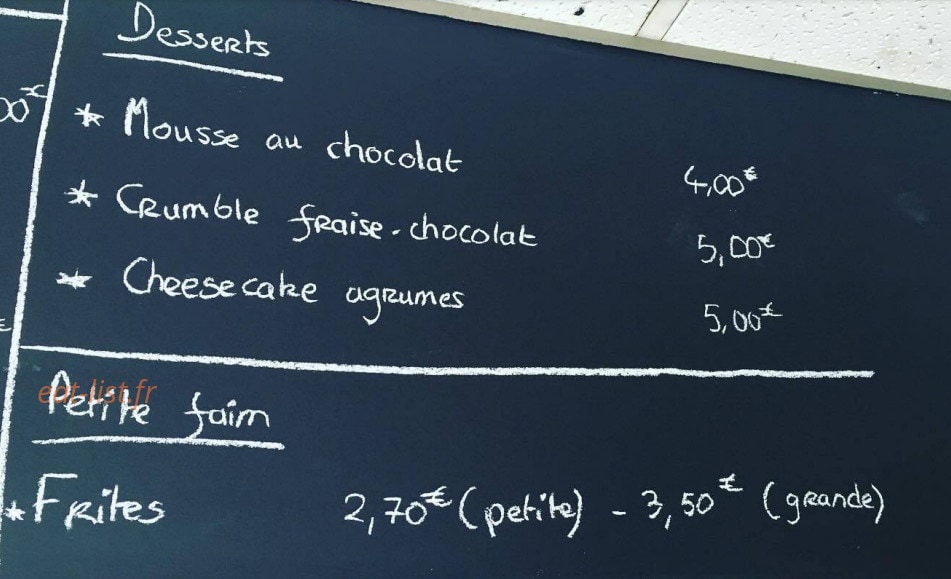 Desserts
00€
* Mousse au chocolat 4,00€
* Crumble fraise-chocolat 5,00€
* Cheesecake agrumes 5,00€
€
eat-list.fr
Petite faim
* Frites 2,70€ (petite) - 3,50€ (grande)